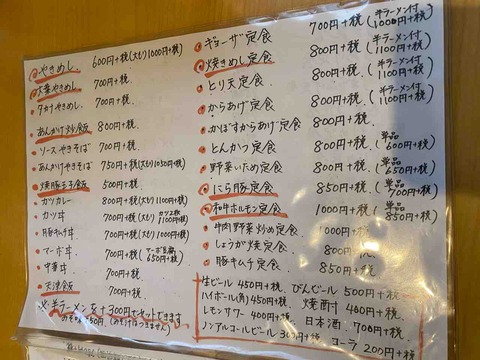 やきめし 600円+税(大もり1000円+税)
大華やきめし 700円+税
タカナやきめし 700円+税
あんかけ炒飯 800円+税
ソースやきそば 700円+税
あんかけやきそば 750円+税(大もり1050円+税)
焼豚玉子飯 500円+税
カツカレー 800円+税(大もり1100円+税)
カツ丼 700円+税(カツ2枚1100円+税)
豚キムチ丼 700円+税(大もり1000円+税)
マーボ丼 700円+税(マーボ豆腐650円+税)
中華丼 700円+税
天津飯 700円+税
半ラーメンを+300円でセットできます
ギョーザ定食 700円+税(半ラーメン付1000円+税)
焼きめし定食 800円+税(半ラーメン付1100円+税)
とり天定食 800円+税
からあげ定食 800円+税(半ラーメン付1100円+税)
かぼすからあげ定食 800円+税
とんかつ定食 800円+税(単品600円+税)
野菜いため定食 800円+税(単品650円+税)
にら豚定食 850円+税(単品700円+税)
和牛ホルモン定食 1000円+税(単品850円+税)
牛肉野菜炒め定食 1000円+税
しょうが焼定食 800円+税
豚キムチ定食 850円+税
生ビール 450円+税 びんビール 500円+税
ハイボール(角) 450円+税 焼酎 400円+税
レモンサワー 400円+税 日本酒 700円+税
ノンアルコールビール 300円+税 コーラ 200円+税